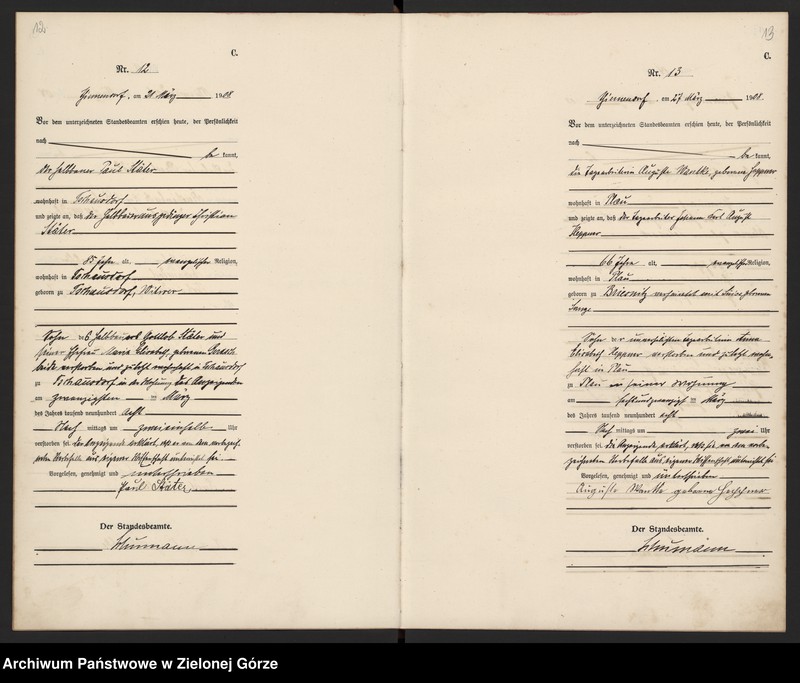 12
C.
Nr. 12
am 21 März 1908.
Vor dem unterzeichneten Standesbeamten erschien heute, der Persönlichkeit
nach
be kannt,
der Halbbauer Paul Stäter
wohnhaft in Tschausdorf
und zeigte an, daß der Halbbauerausgedinger Christian
Stäter
85 Jahre alt, evangelischer Religion,
wohnhaft in Tschausdorf
geboren zu Tschausdorf, Witwer
Sohn des Halbbauers Gottlob Stäter und
seiner Ehefrau Maria Elisabeth, geborenen
beide verstorben und zuletzt wohnhaft in Tschausdorf
zu Tschausdorf in der Wohnung des Anzeigenden
am zwanzigsten März
des Jahres tausend neunhundert acht
Nach mittags um zweieinhalb Uhr
verstorben sei. Der Anzeigende erklärt, daß er von dem vorbezeich-
neten Sterbefalle aus eigener Wissenschaft unterrichtet sei.
Vorgelesen, genehmigt und unterschrieben
Paul Stäter
Der Standesbeamte.
Schumann
13
C.
Nr. 13
am 27 März 1908.
Vor dem unterzeichneten Standesbeamten erschien heute, der Persönlichkeit
nach
be kannt,
die Tagearbeiterin Auguste Wantke, geborene Heppner
wohnhaft in Plau
und zeigte an, daß der Tagearbeiter Johann Karl August
Heppner
66 Jahre alt, evangelischer Religion,
wohnhaft in Plau
geboren zu verheiratet mit geborenen
Lange
Sohn der unverehelichten Tagearbeiterin Anna
Elisabeth Heppner verstorben und zuletzt wohn-
haft in Plau
zu Plau in seiner Wohnung
am sechsundzwanzigsten März
des Jahres tausend neunhundert acht
Nach mittags um zwei Uhr
verstorben sei. Die Anzeigende erklärt, daß sie von dem vorbe-
zeichneten Sterbefalle aus eigener Wissenschaft unterrichtet sei.
Vorgelesen, genehmigt und unterschrieben
Auguste Wantke geborene Heppner
Der Standesbeamte.
Schumann
Archiwum Państwowe w Zielonej Górze